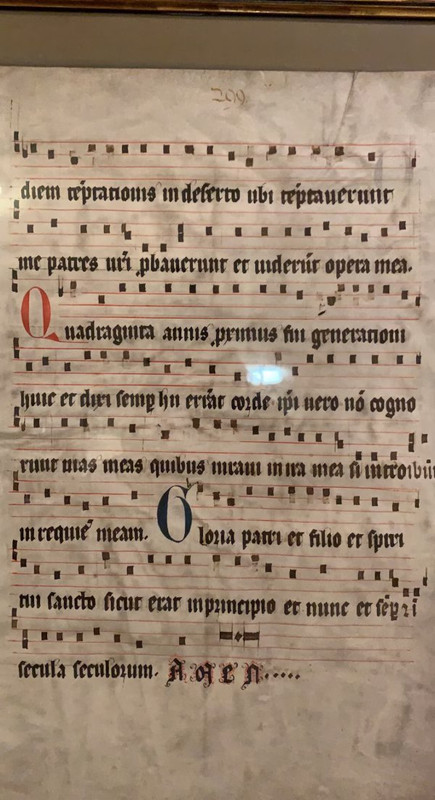 299
diem tēptationis in deserto ubi tēptauerunt
me patres ur̄i ꝓbauerunt et uiderūt opera mea.
Quadraginta annis proximus fui generationi
huic et dixi semꝑ hii errāt corde ip̄i uero nō cogno
runt uias meas quibus iuraui in ira mea si introibūt
in requiē meam. Gloria patri et filio et spiri
tui sancto sicut erat in principio et nunc et sēꝑ et ī
secula seculorum. Amen.....